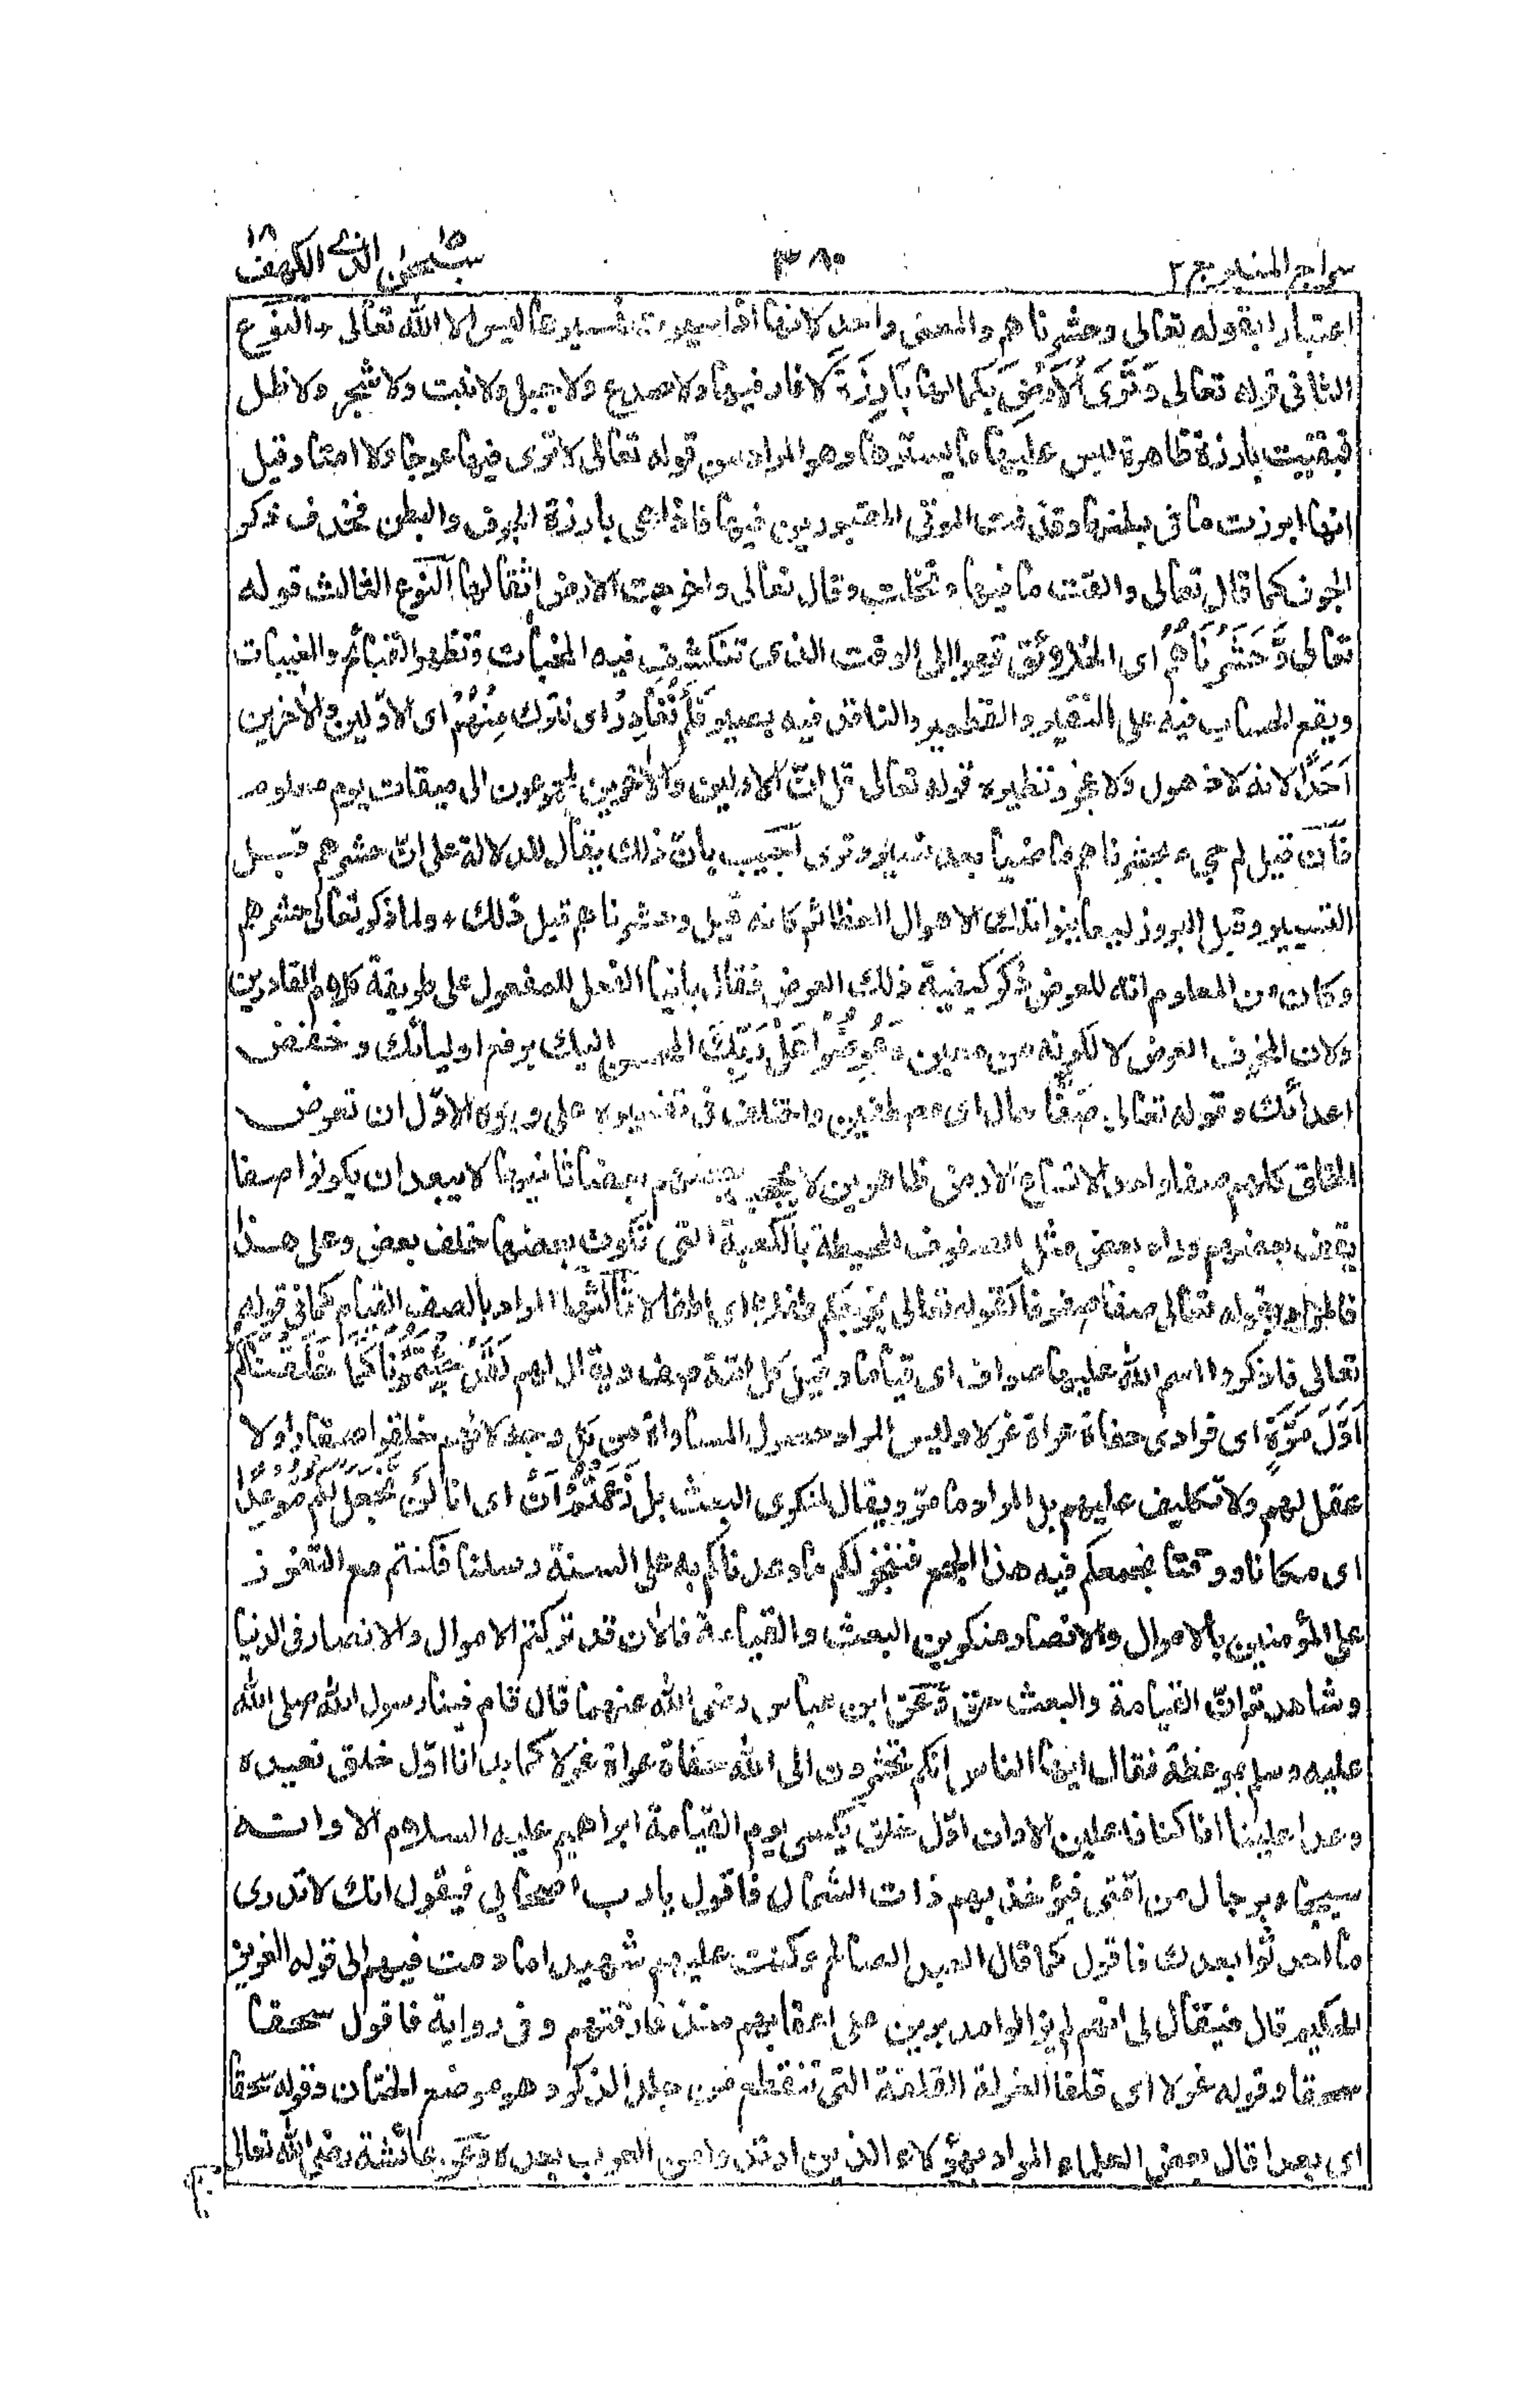 سراج المنير ج ٢
٣٨٠
سبحٰن الذي ١٥ الكهف ١٨
اعتبارا بقوله تعالى وحشرناهم والمعنى واحد لانها اذا سيرت فمسيرها ليس الا الله تعالى والنوع
الثانى قوله تعالى وَتَرَى الْاَرْضَ بكمالها بَارِزَةً لا غار فيها ولا صدع ولا جبل ولا نبت ولا شجر ولا ظل
فبقيت بارزة ظاهرة ليس عليها ما يسترها وهو المراد من قوله تعالى لا ترى فيها عوجا ولا امتا وقيل
انها ابرزت ما فى بطنها وقذفت الموتى المقبورين فيها فاذا هى بارزة الجوف والبطن فحذف ذكر
الجوف كما قال تعالى والقت ما فيها وتخلت وقال تعالى واخرجت الارض اثقالها النوع الثالث قوله
تعالى وَّحَشَرْنَاهُمْ اى الخلائق قهرا الى الوقت الذى تنكشف فيه المخبآت وتظهر القبائح والغيبات
ويقع الحساب فيه على النقير والقطمير والناقد فيه بصير فَلَمْ نُغَادِرْ اى نترك مِنْهُمْ اى الاوّلين والآخرين
اَحَدًا لانه لا ذهول ولا عجز ونظيره قوله تعالى قل ان الاولين والآخرين لمجموعون الى ميقات يوم معلوم
فان قيل لم جىء بحشرناهم ماضيا بعد نسير وترى اجيب بان ذلك يقال للدلالة على ان حشرهم قبل
التسيير وقبل البروز ليعاينوا تلك الاهوال العظائم كانه قيل وحشرناهم قبل ذلك ولما ذكر تعالى حشرهم
وكان من المعلوم انه للعرض ذكر كيفية ذلك العرض فقال بانيا الفعل للمفعول على طريقة كلام القادرين
ولان المخوف العرض لا لكونه من معين وَعُرِضُوْا عَلٰى رَبِّكَ المحسن اليك برفع اوليائك وخفض
اعدائك وقوله تعالى صَفًّا حال اى مصطفين واختلف فى تفسيره على وجوه الاوّل ان تعرض
الخلق كلهم صفا واحدا لاتساع الارض ظاهرين لا يحجب بعضهم بعضا ثانيها لا يبعد ان يكونوا صفا
يقف بعضهم وراء بعض مثل الصفوف المحيطة بالكعبة التى تكون بعضها خلف بعض وعلى هذا
فالمراد بقوله تعالى صفا صفوفا كقوله تعالى يخرجكم طفلا اى اطفالا ثالثها المراد بالصف القيام كما فى قوله
تعالى فاذكروا اسم الله عليها صواف اى قياما وقيل كل امة صف ويقال لهم لَقَدْ جِئْتُمُوْنَا كَمَا خَلَقْنَاكُمْ
اَوَّلَ مَرَّةٍ اى فرادى حفاة عراة غرلا وليس المراد حصول المساواة من كل وجه لانهم خلقوا صغارا ولا
عقل لهم ولا تكليف عليهم بل المراد ما مر ويقال لمنكرى البعث بل زَعَمْتُمْ اَنْ اى انا لَنْ نَّجْعَلَ لَكُمْ مَّوْعِدًا
اى مكانا ووقتا نجمعكم فيه هذا الجمع فننجز لكم ما وعدناكم به على السنة رسلنا فكنتم مع التعزز
على المؤمنين بالاموال والانصار منكرين البعث والقيامة فالآن قد تركتم الاموال والانصار فى الدنيا
وشاهدتم ان القيامة والبعث حق وَعَنْ ابن عباس رضى الله عنهما قال قام فينا رسول الله صلى الله
عليه وسلم بموعظة فقال ايها الناس انكم تحشرون الى الله حفاة عراة غرلا كما بدانا اوّل خلق نعيده
وعدا علينا انا كنا فاعلين الا وان اوّل خلق يكسى يوم القيامة ابراهيم عليه السلام الا وانه
سيجاء برجال من امتى فيؤخذ بهم ذات الشمال فاقول يا رب اصحابى فيقول انك لا تدرى
ما احدثوا بعدك فاقول كما قال العبد الصالح وكنت عليهم شهيدا ما دمت فيهم الى قوله العزيز
الحكيم قال فيقال لى انهم لم يزالوا مدبرين على اعقابهم منذ فارقتهم وفى رواية فاقول سحقا
سحقا وقوله غرلا اى قلفا الغرلة القلفة التى تنقطع من جلد الذكر وهو موضع الختان وقوله سحقا
اى بعدا قال بعض العلماء المراد بهؤلاء الذين ارتدوا من العرب بعده وعن عائشة رضى الله تعالى